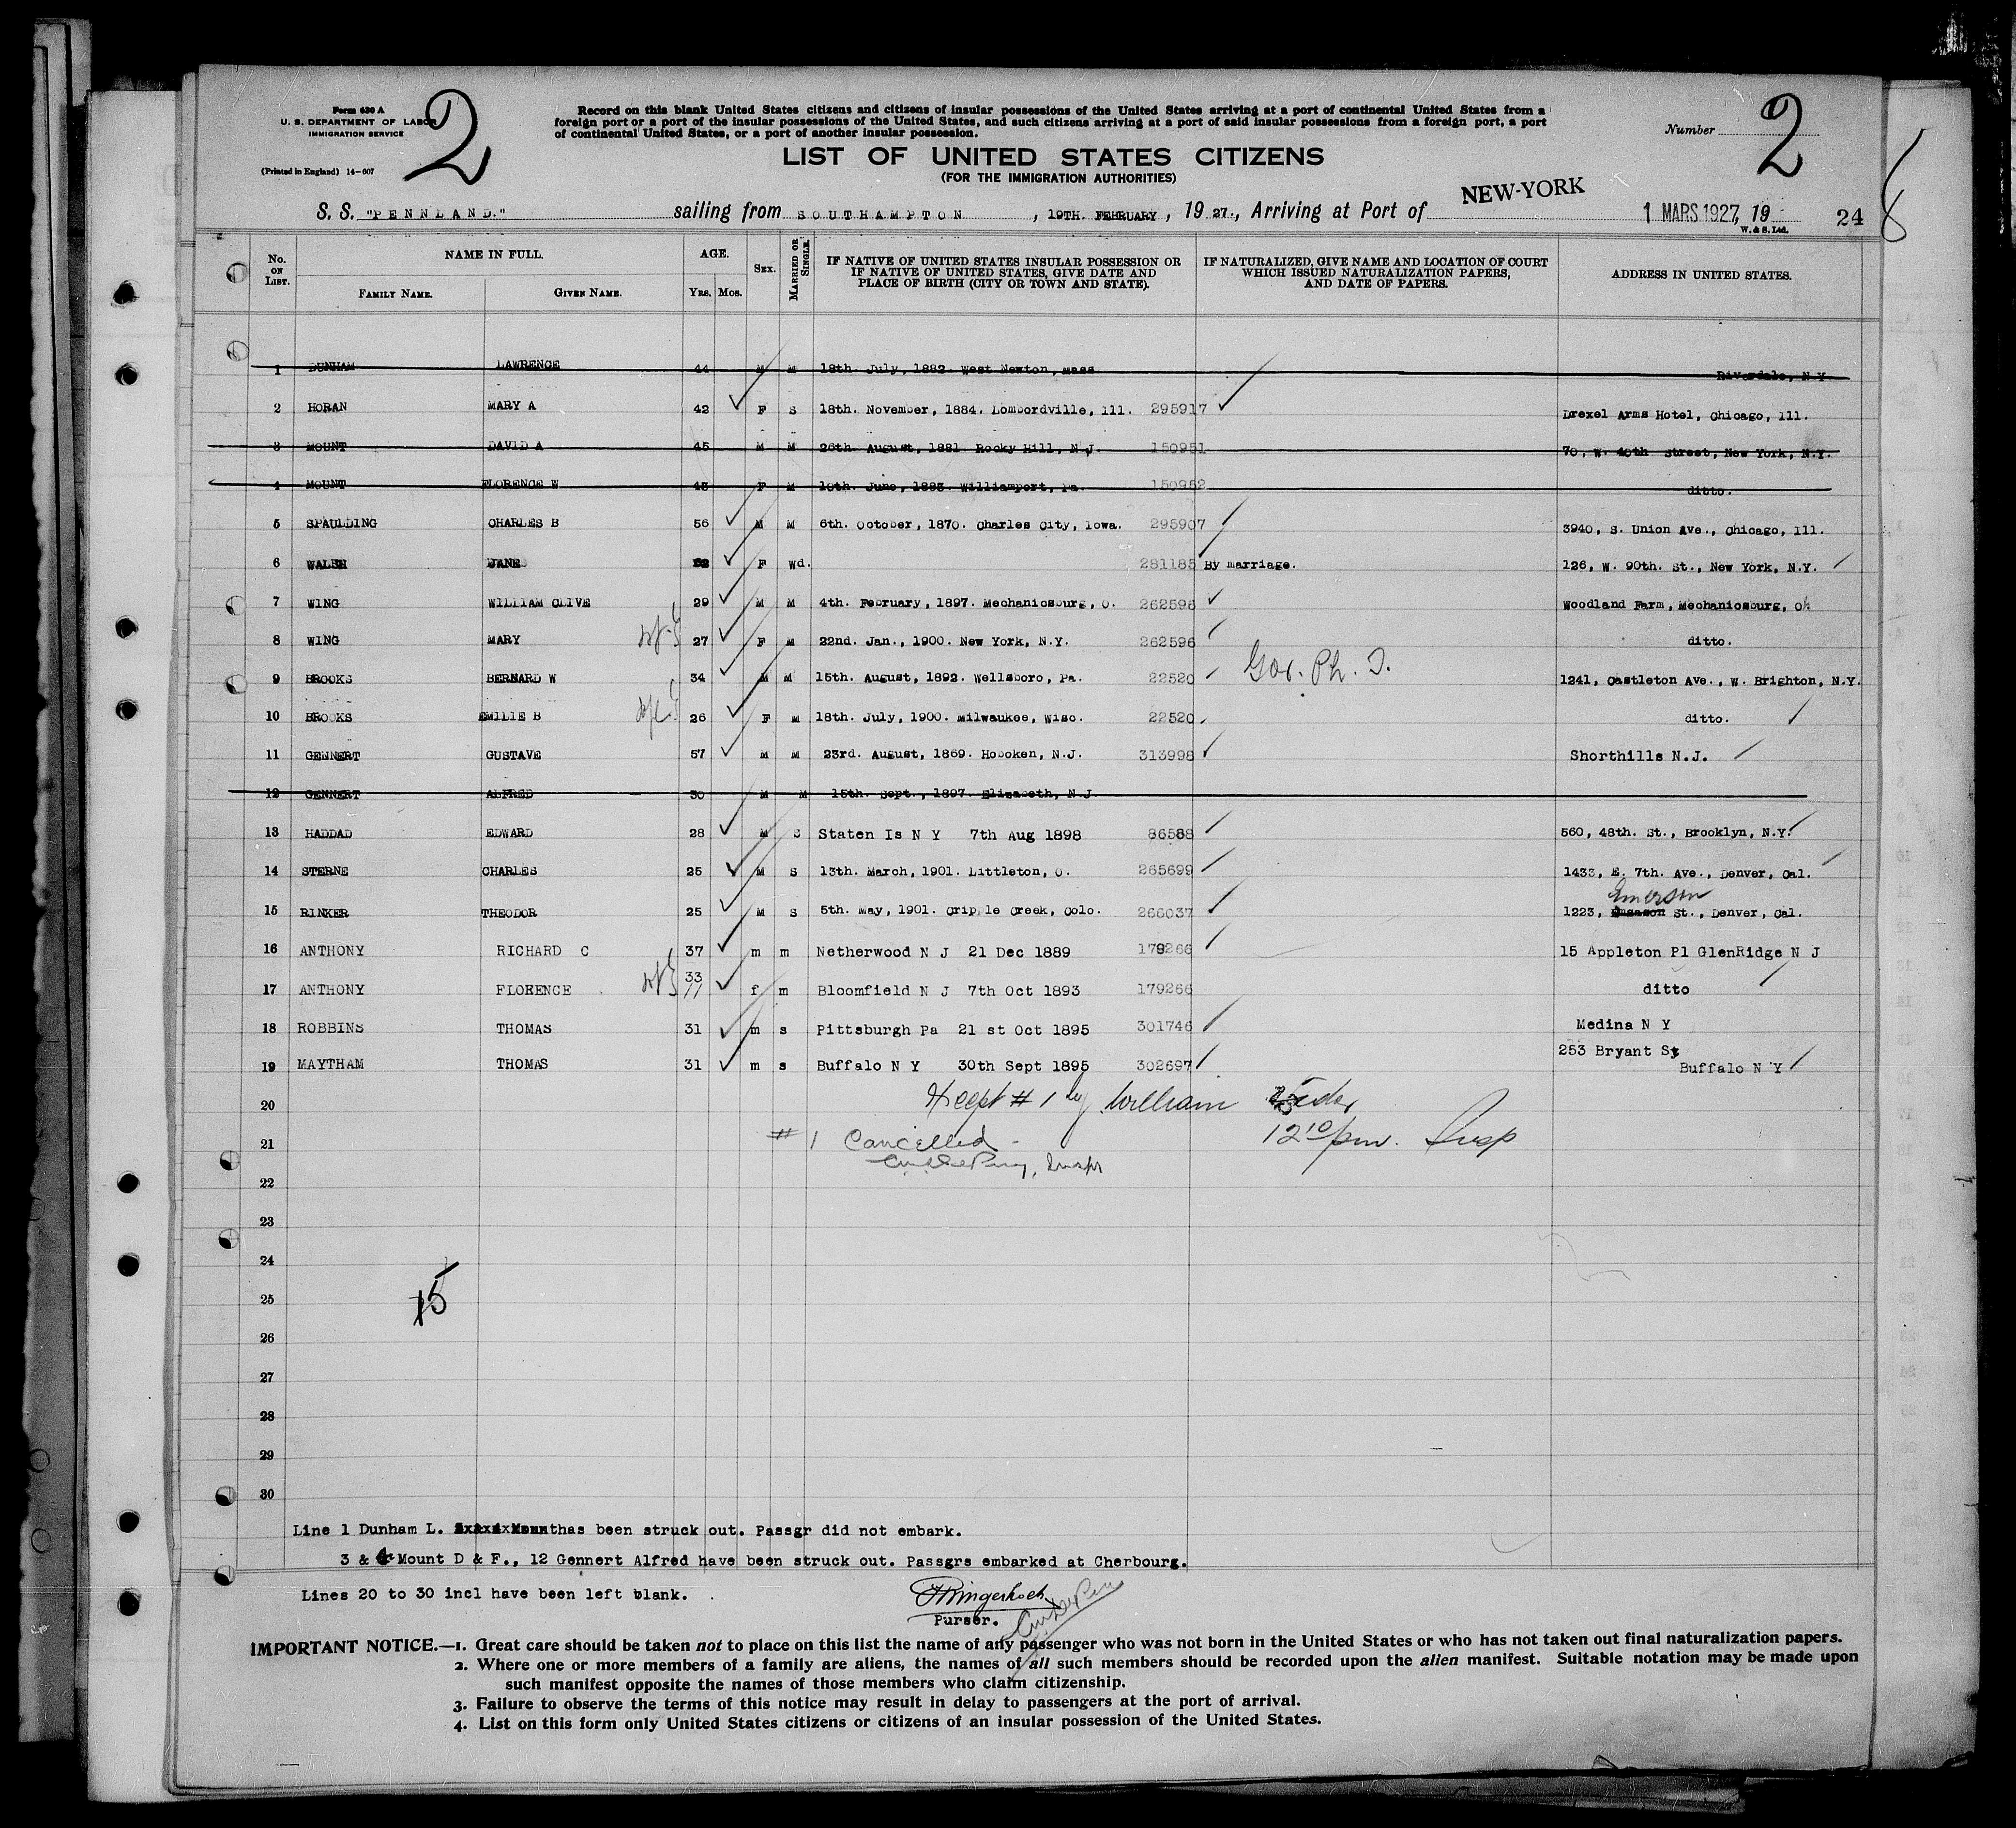 Form 630 A
U. S. DEPARTMENT OF LABOR
IMMIGRATION SERVICE
(Printed in England) 14-607
2
Record on this blank United States citizens and citizens of insular possessions of the United States arriving at a port of continental United States from a
foreign port or a port of the insular possessions of the United States, and such citizens arriving at a port of said insular possessions from a foreign port, a port
of continental United States, or a port of another insular possession.
Number 2
LIST OF UNITED STATES CITIZENS
(FOR THE IMMIGRATION AUTHORITIES)
S. S. "PENNLAND." sailing from SOUTHAMPTON, 19TH. FEBRUARY, 1927., Arriving at Port of NEW-YORK 1 MARS 1927, 19 24
W. & S. Ltd.
No. ON LIST. NAME IN FULL. FAMILY NAME. GIVEN NAME. AGE. YRS. MOS. SEX. MARRIED OR SINGLE. IF NATIVE OF UNITED STATES INSULAR POSSESSION OR IF NATIVE OF UNITED STATES, GIVE DATE AND PLACE OF BIRTH (CITY OR TOWN AND STATE). IF NATURALIZED, GIVE NAME AND LOCATION OF COURT WHICH ISSUED NATURALIZATION PAPERS, AND DATE OF PAPERS. ADDRESS IN UNITED STATES.
1 DUNHAM LAWRENCE 44 M M 18th. July, 1882. West Newton, Mass. Riverdale, N.Y.
2 HORAN MARY A 42 F S 18th. November, 1884. Lombordville, Ill. 295917 Drexel Arms Hotel, Chicago, Ill.
3 MOUNT DAVID A 45 M M 26th. August, 1881. Rocky Hill, N.J. 150951 70, W. 40th street, New York, N.Y.
4 MOUNT FLORENCE W 43 F M 10th. June, 1883. Williamport, Pa. 150952 ditto.
5 SPAULDING CHARLES B 56 M M 6th. October, 1870. Charles City, Iowa. 295907 3940, S. Union Ave., Chicago, Ill.
6 WALSH JANE F Wd. 281185 By marriage. 126, W. 90th. St., New York, N.Y.
7 WING WILLIAM CLIVE 29 M M 4th. February, 1897. Mechanicsburg, O. 262596 Woodland Farm, Mechanicsburg, Oh
8 WING MARY 27 F M 22nd. Jan., 1900. New York, N.Y. 262596 ditto.
9 BROOKS BERNARD W 34 M M 15th. August, 1892. Wellsboro, Pa. 22520 1241, Castleton Ave., W. Brighton, N.Y.
10 BROOKS EMILIE B 26 F M 18th. July, 1900. Milwaukee, Wisc. 22520 ditto.
11 GENNERT GUSTAVE 57 M M 23rd. August, 1869. Hoboken, N.J. 313998 Shorthills N.J.
12 GENNERT ALFRED 30 M M 15th. Sept., 1897. Elizabeth, N.J.
13 HADDAD EDWARD 28 M S Staten Is N Y 7th Aug 1898 86588 560, 48th. St., Brooklyn, N.Y.
14 STERNE CHARLES 25 M S 13th. March, 1901. Littleton, O. 265699 1433, E. 7th. Ave., Denver, Cal.
15 RINKER THEODOR 25 M S 5th. May, 1901. Cripple Creek, Colo. 266037 1223, Emerson St., Denver, Cal.
16 ANTHONY RICHARD C 37 m m Netherwood N J 21 Dec 1889 179266 15 Appleton Pl GlenRidge N J
17 ANTHONY FLORENCE 33 f m Bloomfield N J 7th Oct 1893 179266 ditto
18 ROBBINS THOMAS 31 m s Pittsburgh Pa 21 st Oct 1895 301746 Medina N Y
19 MAYTHAM THOMAS 31 m s Buffalo N Y 30th Sept 1895 302697 253 Bryant St Buffalo N Y
20 # 1 by William
21 # 1 Cancelled 12 10 pm. Insp
22
23
24
25 15
26
27
28
29
30
Line 1 Dunham L. has been struck out. Passgr did not embark.
3 & 4 Mount D & F., 12 Gennert Alfred have been struck out. Passgrs embarked at Cherbourg.
Lines 20 to 30 incl have been left blank.
Purser.
IMPORTANT NOTICE.—1. Great care should be taken not to place on this list the name of any passenger who was not born in the United States or who has not taken out final naturalization papers.
2. Where one or more members of a family are aliens, the names of all such members should be recorded upon the alien manifest. Suitable notation may be made upon
such manifest opposite the names of those members who claim citizenship.
3. Failure to observe the terms of this notice may result in delay to passengers at the port of arrival.
4. List on this form only United States citizens or citizens of an insular possession of the United States.